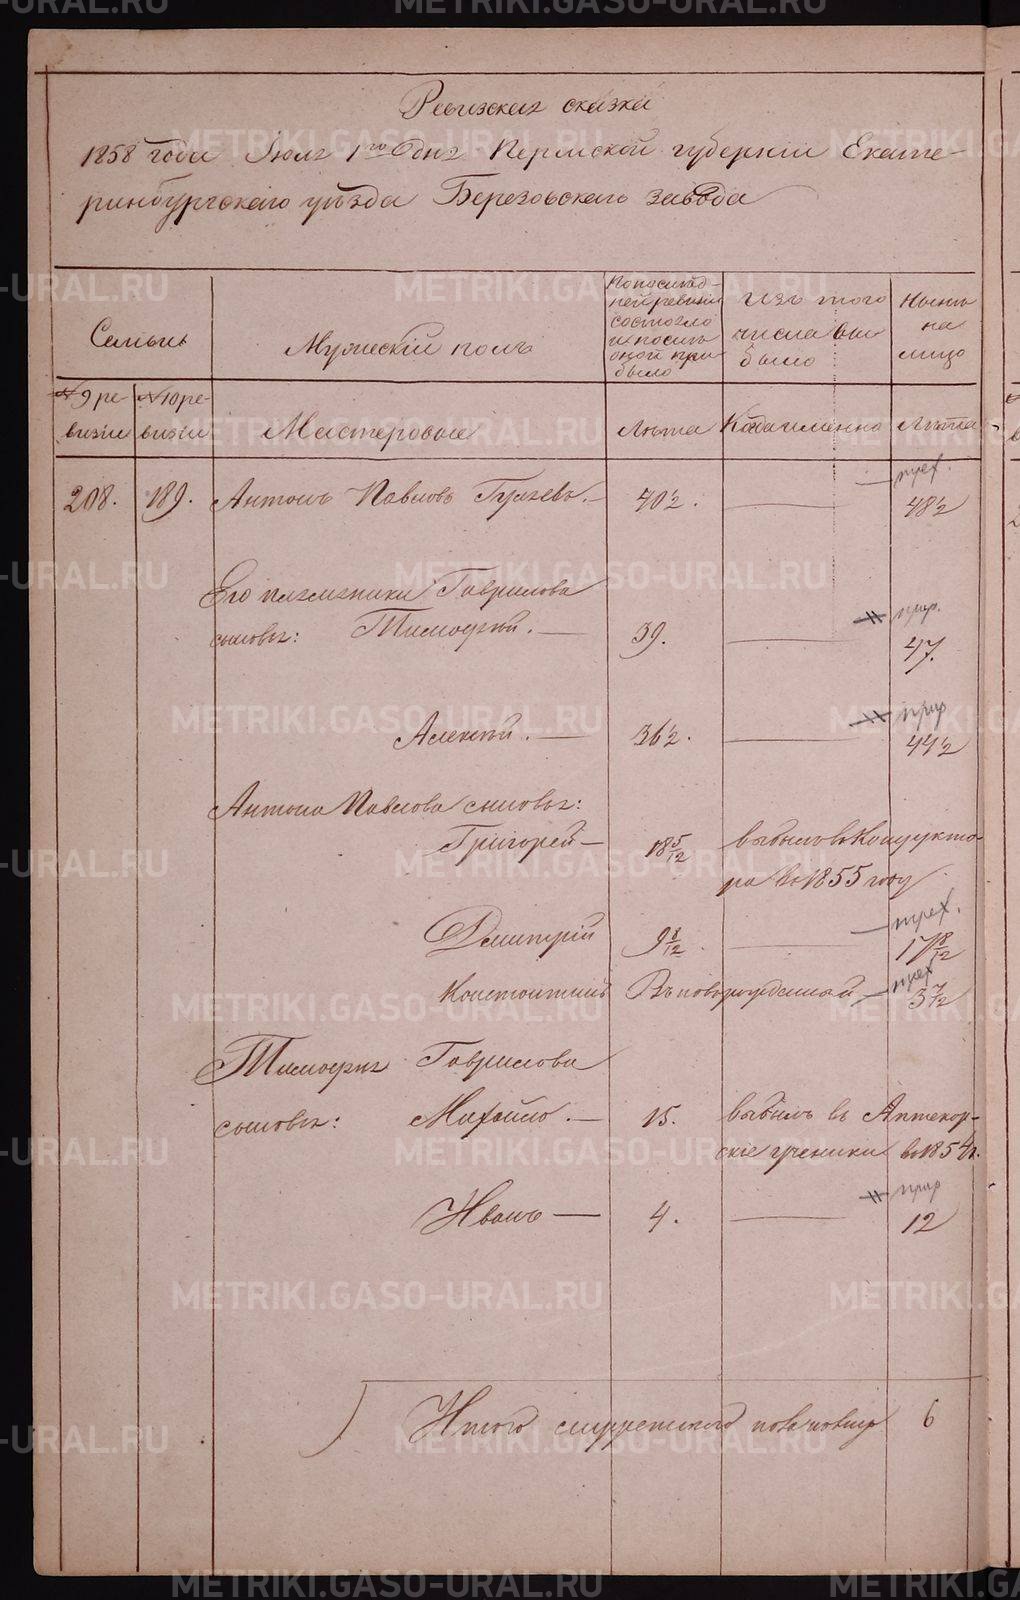 Ревизская сказка
1858 года Июля 1го дня Пермской губернии Екате-
ринбургскаго уѣзда Березовскаго завода
Семьи
Мужескій полъ
По послѣд-
ней ревизіи
состояло
и послѣ
оной при
было
Изъ того
числа вы
было
Нынѣ
на
лицо
№ 9 ре-
визіи
№ 10 ре-
визіи
Мастеровые
Лѣта
Когда именно
Лѣта
208. 189. Антонъ Павловъ 40½. 48½
Его племянники Гаврилова
сыновья: Тимофей. 39. 47.
Алексѣй. 36½. 44½
Антона Павлова сыновья:
Григорей 18 5/12 выбылъ въ Кондукто-
ра въ 1855 году
Дмитрій 9 8/12. 17 8/12
Константинъ Въ новорожденной 3 7/12
Тимофея Гаврилова
сыновья: Михайло. 15. выбылъ въ Аптекар-
скіе ученики въ 1854 г.
Иванъ 4. 12
Итого мужескаго пола 6
METRIKI.GASO-URAL.RU